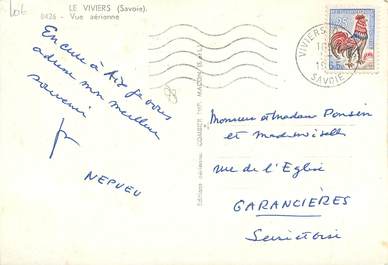 LE VIVIERS (Savoie).
8426 - Vue aérienne
En cure à Aix je vous
adresse mon meilleur
souvenir
NEPVEU
Editions aériennes COMBIER Imp. MACON (S.&L.)
VIVIERS
SAVOIE
0,25
Monsieur et Madame Ponsin
et Mademoiselle
rue de l'Eglise
GARANCIÈRES
Seine et Oise